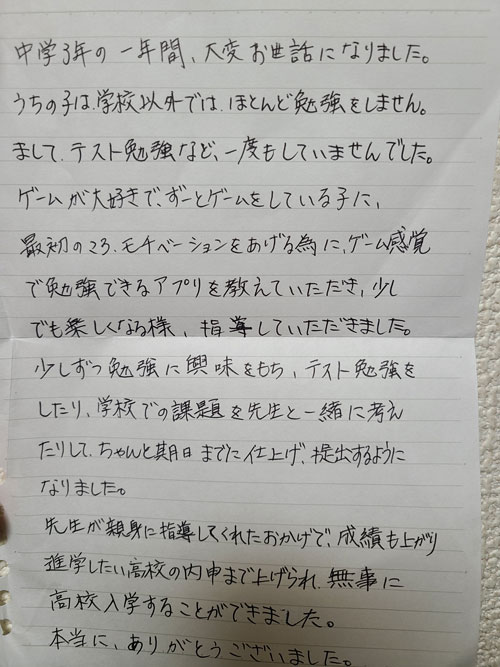 中学3年の一年間、大変お世話になりました。
うちの子は、学校以外では、ほとんど勉強をしません。
まして、テスト勉強など、一度もしていませんでした。
ゲームが大好きで、ずーとゲームをしている子に、
最初のころ、モチベーションをあげる為に、ゲーム感覚
で勉強できるアプリを教えていただき、少し
でも楽しくなる様、指導していただきました。
少しずつ勉強に興味をもち、テスト勉強を
したり、学校での課題を先生と一緒に考え
たりして、ちゃんと期日までに仕上げ、提出するように
なりました。
先生が親身に指導してくれたおかげで、成績も上がり
進学したい高校の内申まで上げられ、無事に
高校入学することができました。
本当に、ありがとうございました。